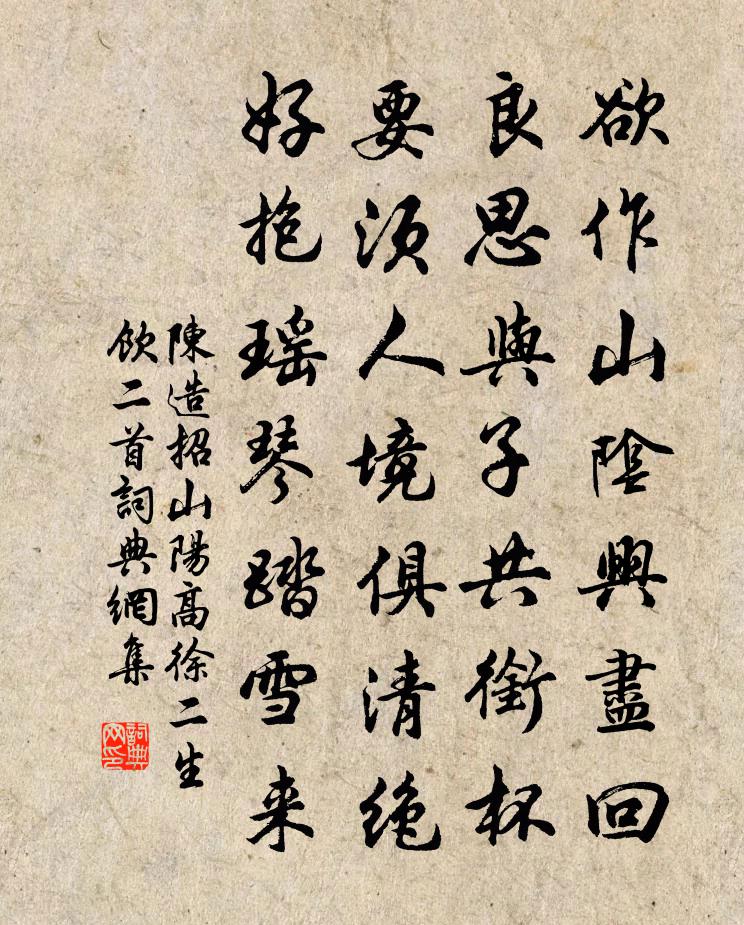 欲作山陰興盡回
良思與子共銜杯
要須人境俱清絶
好抱瑶琴踏雪来
陳造招山陽高徐二生
飲二首詞典網集
詞典
网印